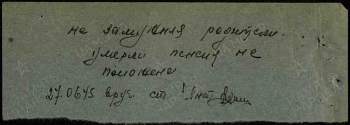 не замужняя родители
умерли пенсия не
положена
27.06.45